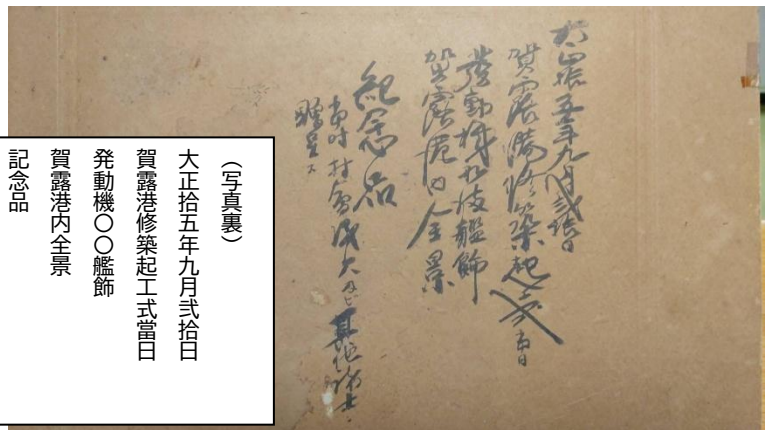 大正拾五年九月弐拾日
賀露港修築起工式當日
發動機艦飾
賀露港内全景
紀念品
當時村會其他諸士
贈呈ス
（写真裏）
大正拾五年九月弐拾日
賀露港修築起工式當日
発動機〇〇艦飾
賀露港内全景
記念品